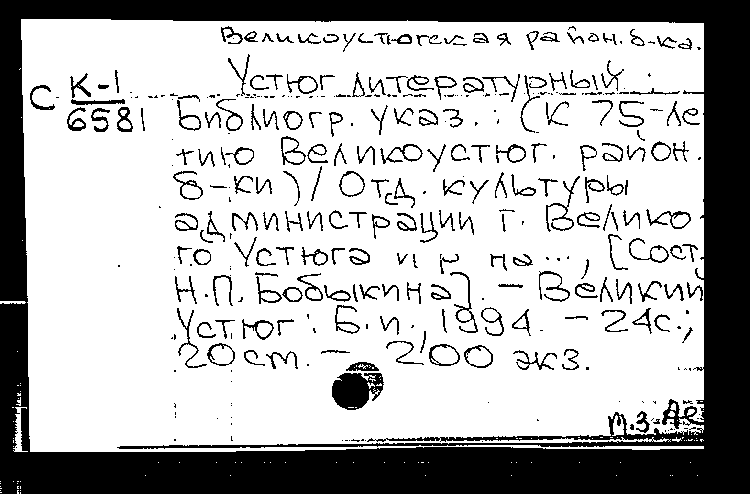 Великоустюгская район. б-ка.
Устюг литературный :
С К-1
6581
Библиогр. указ. : (К 75-ле-
тию Великоустюг. район.
б-ки) / Отд. культуры
администрации г. Велико-
го Устюга и р-на..., [Сост.
Н.П. Бобыкина]. — Великий
Устюг : Б.и., 1994. — 24с.;
20 см. — 200 экз.
т.з.